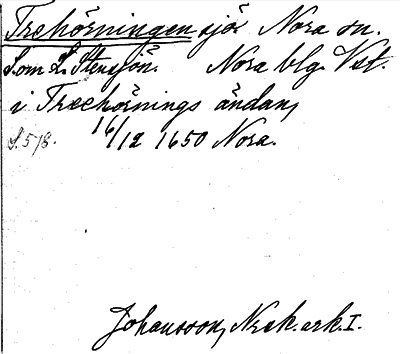 Trehörningen sjö Nora sn.
Som L. Stensjön. Nora blg. Vst.
i Treehörnings ändan,
S. 578. 16/12 1650 Nora.
Johansson, Nrak. ark. I.